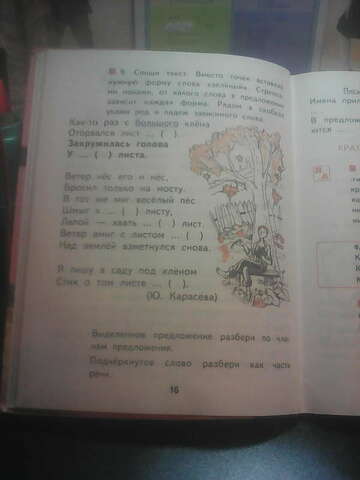 9. Спиши текст. Вместо точек вставляй
нужную форму слова «зелёный». Стрелка-
ми покажи, от какого слова в предложении
зависит каждая форма. Рядом в скобках
укажи род и падеж зависимого слова.
Как-то раз с большого клёна
Оторвался лист ... ( ).
Закружилась голова
У ... ( ) листа.
Ветер нёс его и нёс,
Бросил только на мосту.
В тот же миг весёлый пёс
Шмыг к ... ( ) листу,
Лапой — хвать ... ( ) лист.
Ветер вмиг с листом ... ( )
Над землёй взметнулся снова.
Я пишу в саду под клёном
Стих о том листе ... ( ).
(Ю. Карасёва)
Выделенное предложение разбери по чле-
нам предложения.
Подчёркнутое слово разбери как часть
речи.
16
Имена
В предложе